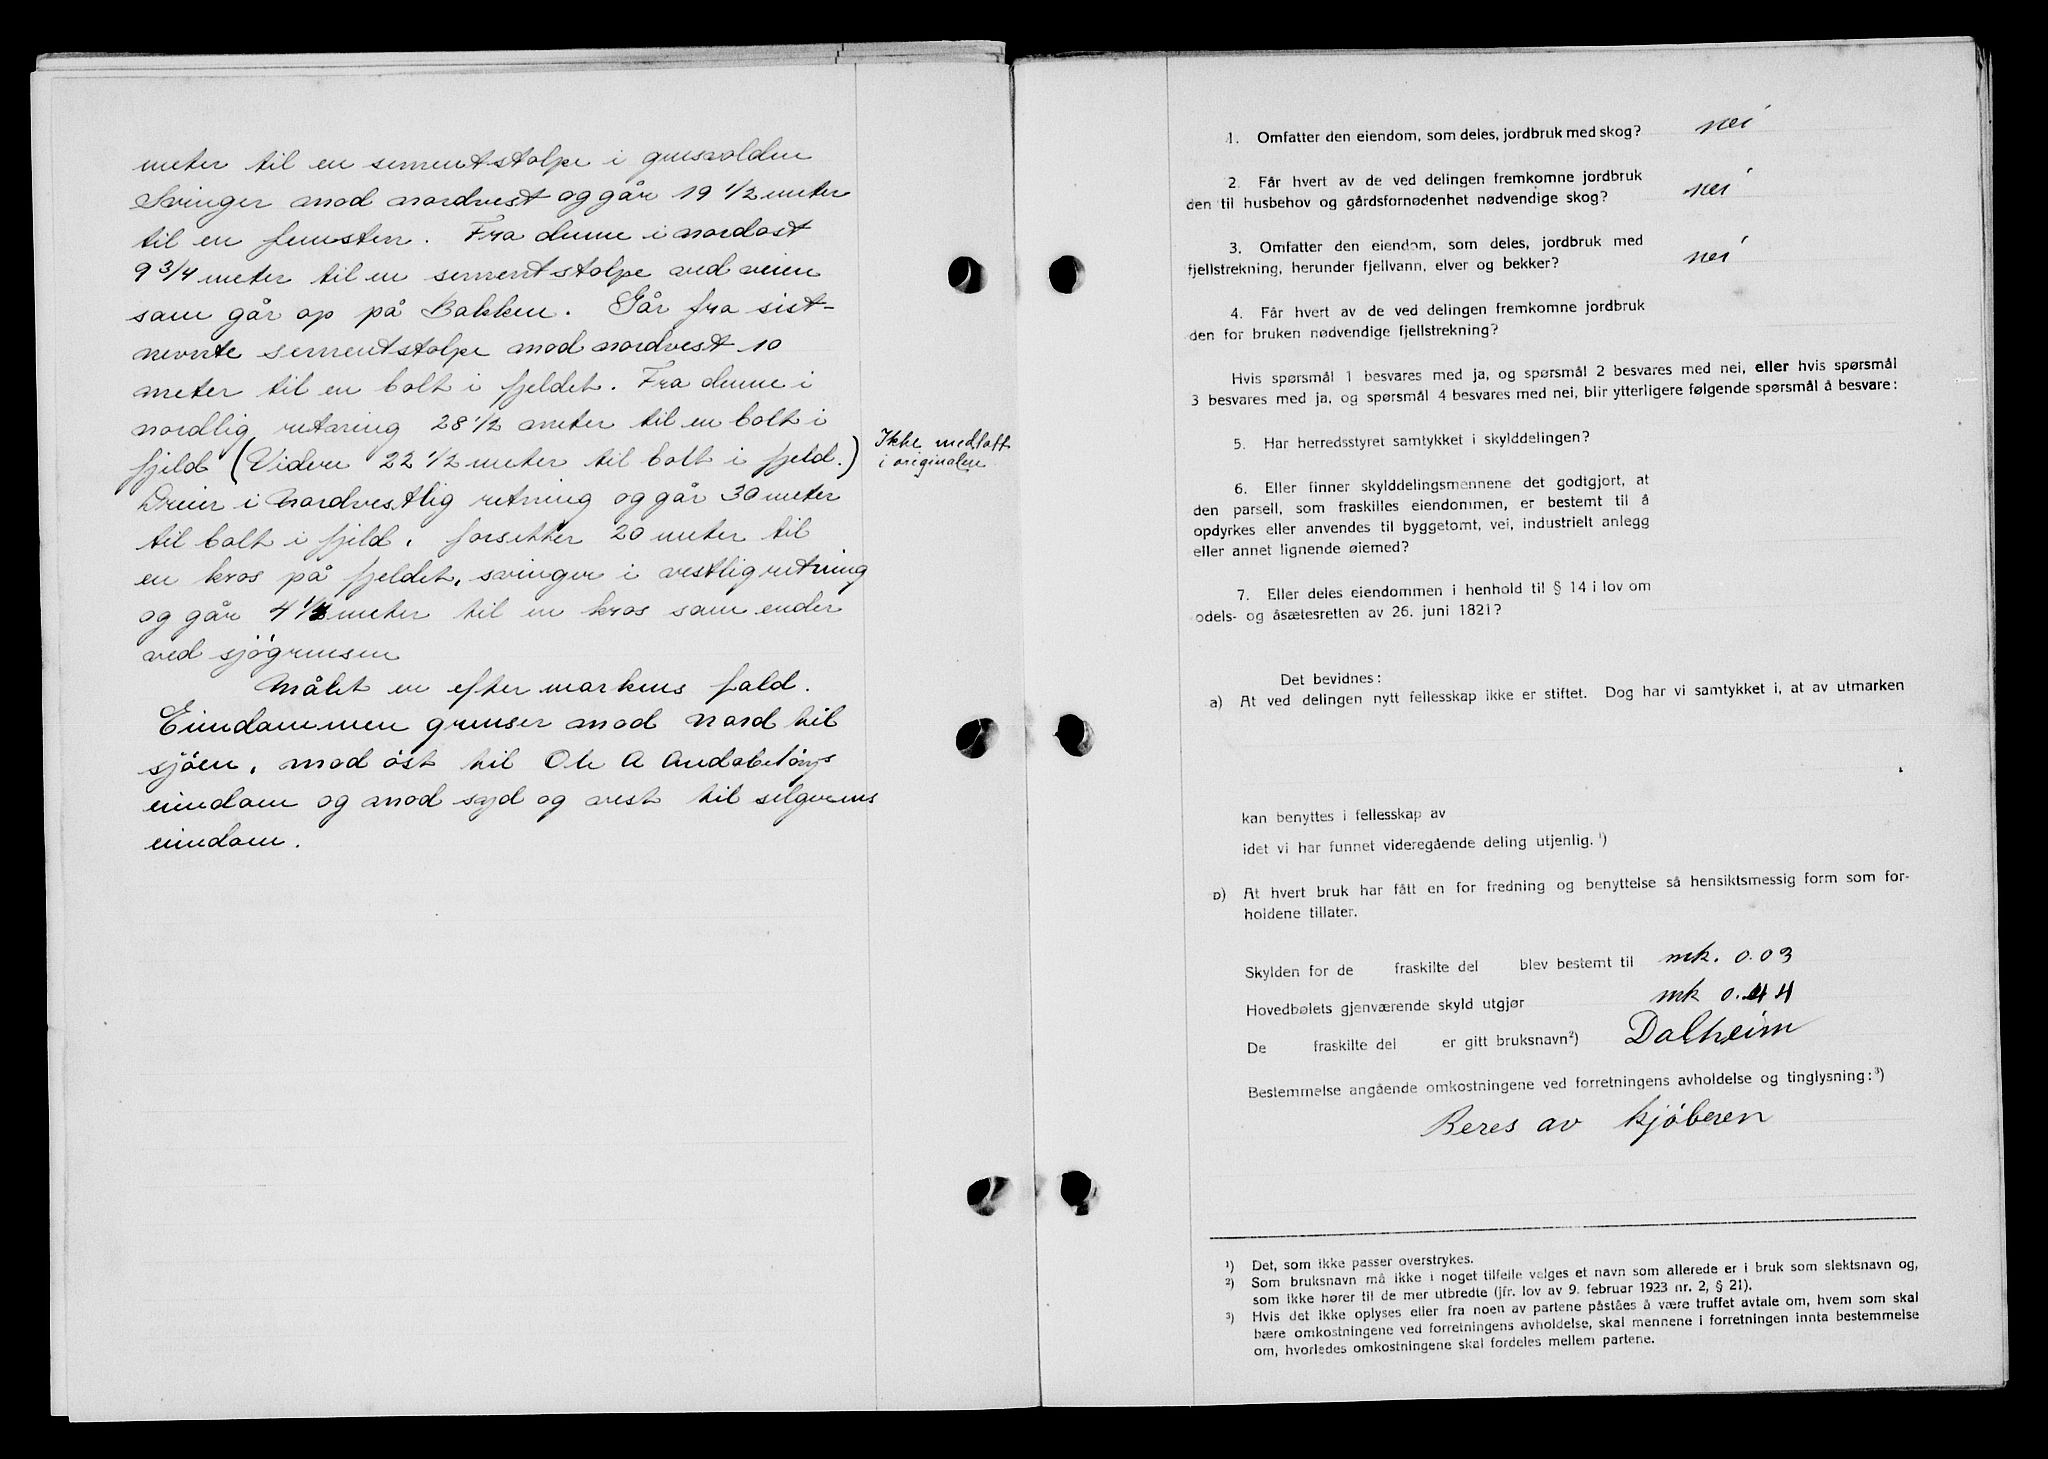 meter til en sementstolpe i grusvolden
Svinger mod nordvest og går 19 1/2 meter
til en femsten. Fra denne i nordost
9 3/4 meter til en sementstolpe ved veien
som går op på Bakken. Går fra sist-
nevnte sementstolpe mod nordvest 10
meter til en bolt i fjeldet. Fra denne i
nordlig retning 28 1/2 meter til en bolt i
fjeld (Videre 22 1/2 meter til bolt i fjeld.)
Ikke medtatt
i originalen
Dreier i nordvestlig retning og går 30 meter
til bolt i fjeld. forsetter 20 meter til
en kros på fjeldet, svinger i vestlig retning
og går 4 meter til en kros som ender
ved sjøgrensen
Målet er efter markens fald.
Eiendommen grenser mod nord til
sjøen, mod øst til Ole A
eiendom og mod syd og vest til selgerens
eiendom.
1. Omfatter den eiendom, som deles, jordbruk med skog? nei
2. Får hvert av de ved delingen fremkomne jordbruk
den til husbehov og gårdsfornødenhet nødvendige skog? nei
3. Omfatter den eiendom, som deles, jordbruk med
fjellstrekning, herunder fjellvann, elver og bekker? nei
4. Får hvert av de ved delingen fremkomne jordbruk
den for bruken nødvendige fjellstrekning?
Hvis spørsmål 1 besvares med ja, og spørsmål 2 besvares med nei, eller hvis spørsmål
3 besvares med ja, og spørsmål 4 besvares med nei, blir ytterligere følgende spørsmål å besvare:
5. Har herredsstyret samtykket i skylddelingen?
6. Eller finner skylddelingsmennene det godtgjort, at
den parsell, som fraskilles eiendommen, er bestemt til å
opdyrkes eller anvendes til byggetomt, vei, industrielt anlegg
eller annet lignende øiemed?
7. Eller deles eiendommen i henhold til § 14 i lov om
odels- og åsætesretten av 26. juni 1821?
Det bevidnes:
a) At ved delingen nytt fellesskap ikke er stiftet. Dog har vi samtykket i, at av utmarken
kan benyttes i fellesskap av
idet vi har funnet videregående deling utjenlig.¹)
b) At hvert bruk har fått en for fredning og benyttelse så hensiktsmessig form som for-
holdene tillater.
Skylden for de fraskilte del blev bestemt til mk. 0.03
Hovedbølets gjenværende skyld utgjør mk 0.44
De fraskilte del er gitt bruksnavn²) Dalheim
Bestemmelse angående omkostningene ved forretningens avholdelse og tinglysning:³)
Beres av kjøberen
¹) Det, som ikke passer overstrykes.
²) Som bruksnavn må ikke i noget tilfelle velges et navn som allerede er i bruk som slektsnavn og,
som ikke hører til de mer utbredte (jfr. lov av 9. februar 1923 nr. 2, § 21).
³) Hvis det ikke oplyses eller fra noen av partene påståes å være truffet avtale om, hvem som skal
bære omkostningene ved forretningens avholdelse, skal mennene i forretningen innta bestemmelse
om, hvorledes omkostningene skal fordeles mellem partene.